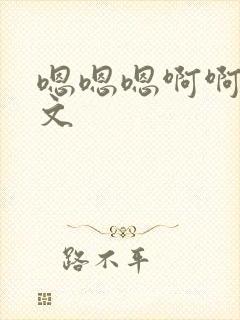 嗯嗯嗯啊啊
文
路不平